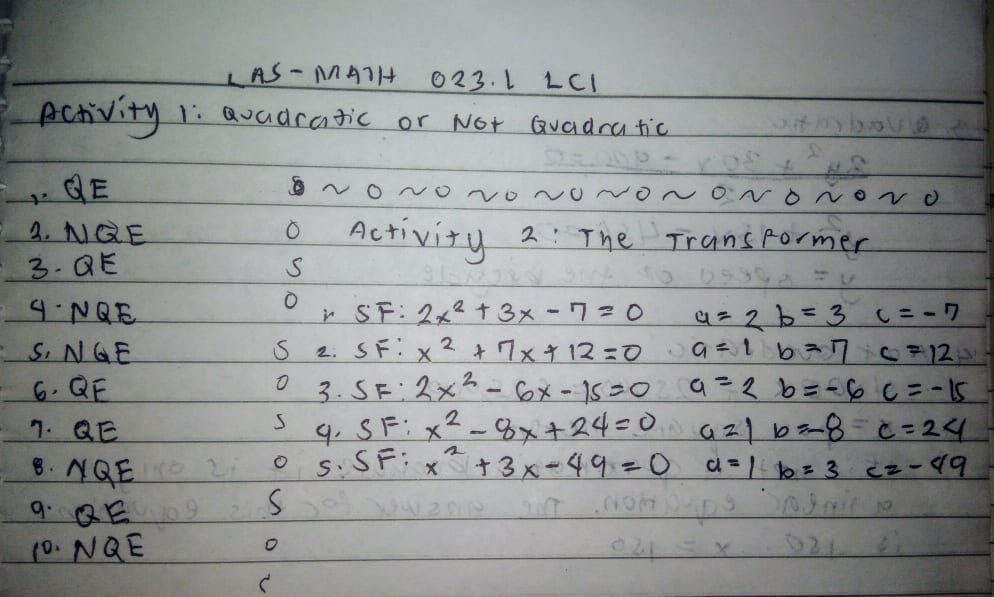 LAS-MATH 023.1 LCI
Activity 1: Quadratic or Not Quadratic
1. QE
2. NQE
3. QE
4. NQE
5. NQE
6. QE
7. QE
8. NQE
9. QE
10. NQE
Activity 2: The Transformer
1. SF: 2x² + 3x - 7 = 0 a = 2 b = 3 c = -7
2. SF: x² + 7x + 12 = 0 a = 1 b = 7 c = 12
3. SF: 2x² - 6x - 15 = 0 a = 2 b = -6 c = -15
4. SF: x² - 8x + 24 = 0 a = 1 b = -8 c = 24
5. SF: x² + 3x - 49 = 0 a = 1 b = 3 c = -49